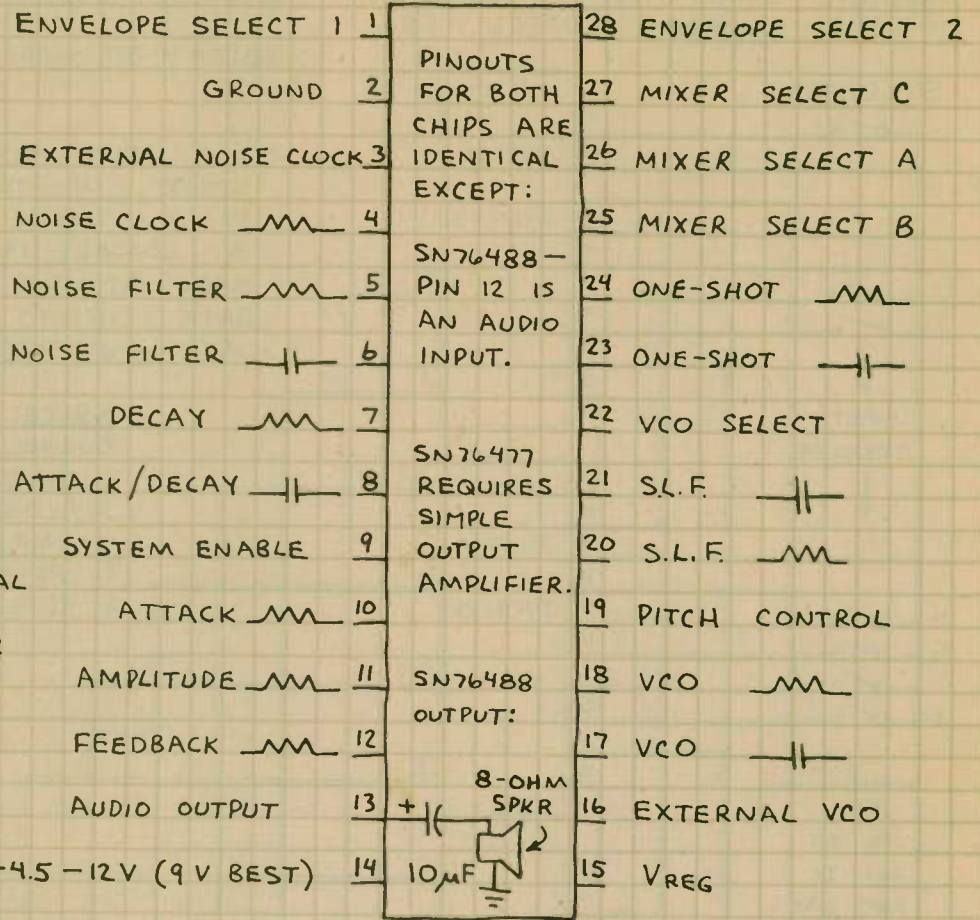 ENVELOPE SELECT 1 1
GROUND 2
EXTERNAL NOISE CLOCK 3
NOISE CLOCK 4
NOISE FILTER 5
NOISE FILTER 6
DECAY 7
ATTACK/DECAY 8
SYSTEM ENABLE 9
AL
ATTACK 10
AMPLITUDE 11
FEEDBACK 12
AUDIO OUTPUT 13
-4.5 - 12V (9 V BEST) 14
PINOUTS
FOR BOTH
CHIPS ARE
IDENTICAL
EXCEPT:
SN76488 -
PIN 12 IS
AN AUDIO
INPUT.
SN76477
REQUIRES
SIMPLE
OUTPUT
AMPLIFIER.
SN76488
OUTPUT:
8-OHM
SPKR
+
10µF
28 ENVELOPE SELECT 2
27 MIXER SELECT C
26 MIXER SELECT A
25 MIXER SELECT B
24 ONE-SHOT
23 ONE-SHOT
22 VCO SELECT
21 S.L.F.
20 S.L.F.
19 PITCH CONTROL
18 VCO
17 VCO
16 EXTERNAL VCO
15 VREG